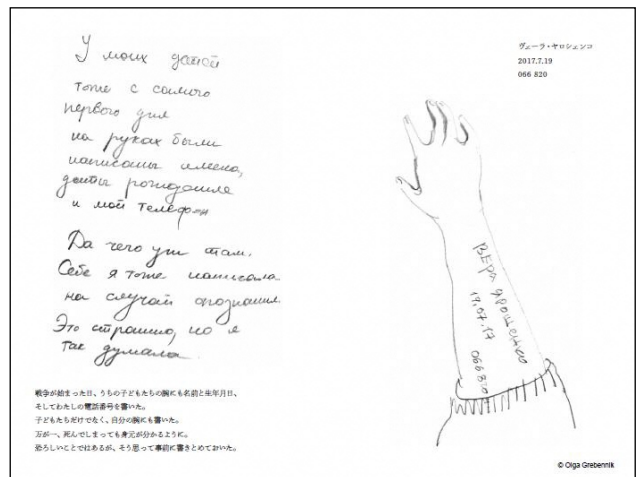 У моих детей
тоже с самого
первого дня
на руках были
написаны имена,
даты рождения
и мой телефон
Да чего уж там.
Себе я тоже написала
на случай опознания.
Это страшно, но я
так думала.
戦争が始まった日、うちの子どもたちの腕にも名前と生年月日、
そしてわたしの電話番号を書いた。
子どもたちだけでなく、自分の腕にも書いた。
万が一、死んでしまっても身元が分かるように。
恐ろしいことではあるが、そう思って事前に書きとめておいた。
ヴェーラ・ヤロシェンコ
2017.7.19
066 820
Вера Ярошенко
19.07.17
066 820
© Olga Grebennik